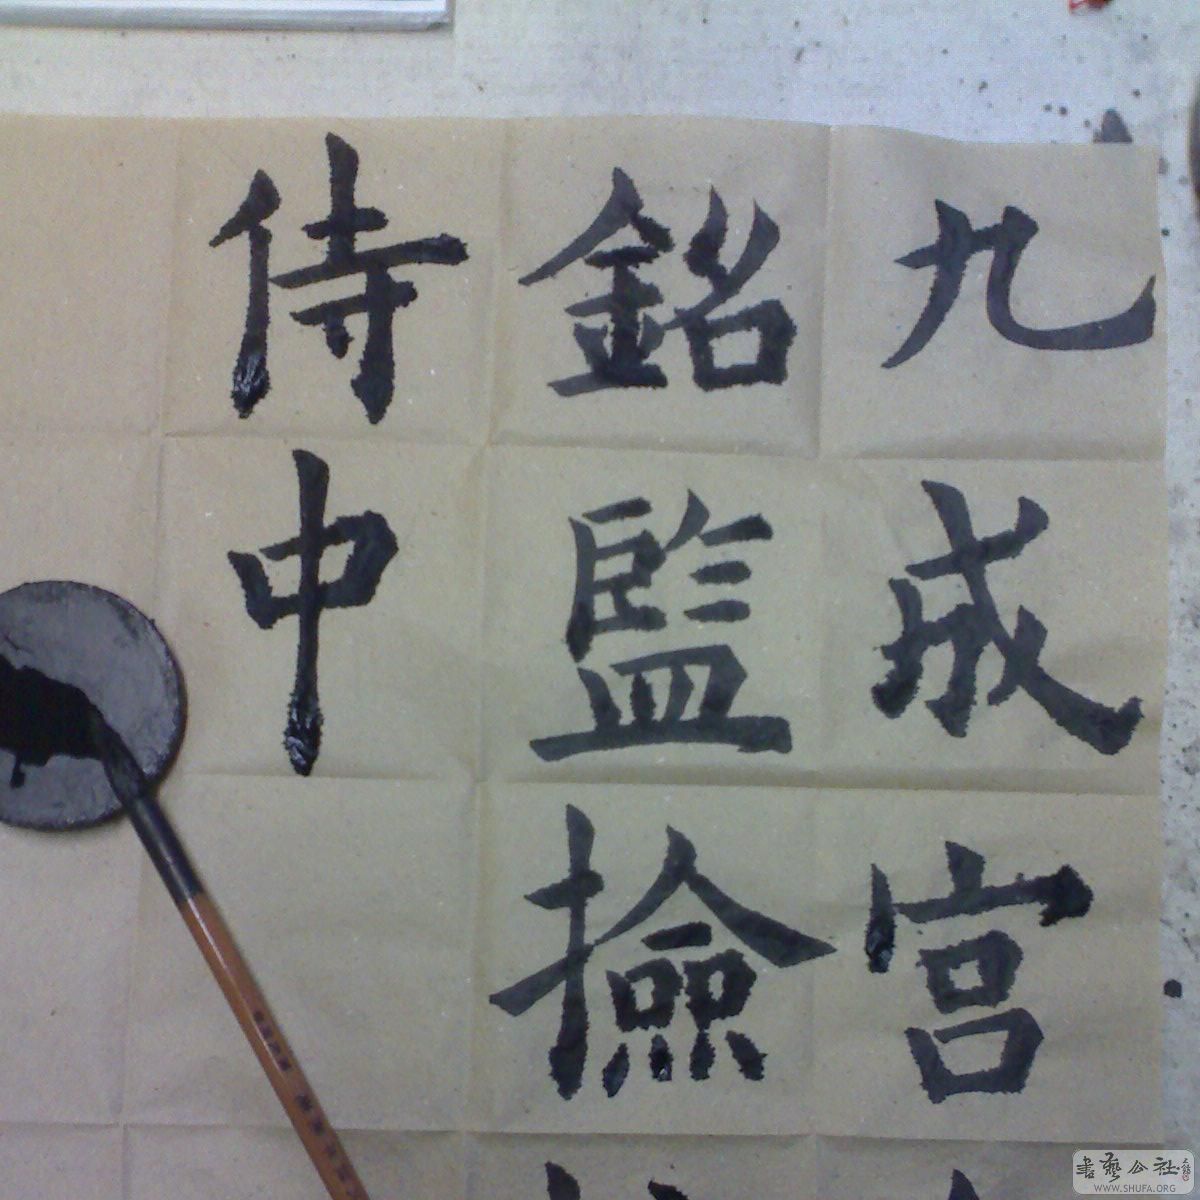 九成宫
銘監撿
侍中
書藝公社
WWW.SHUFA.ORG